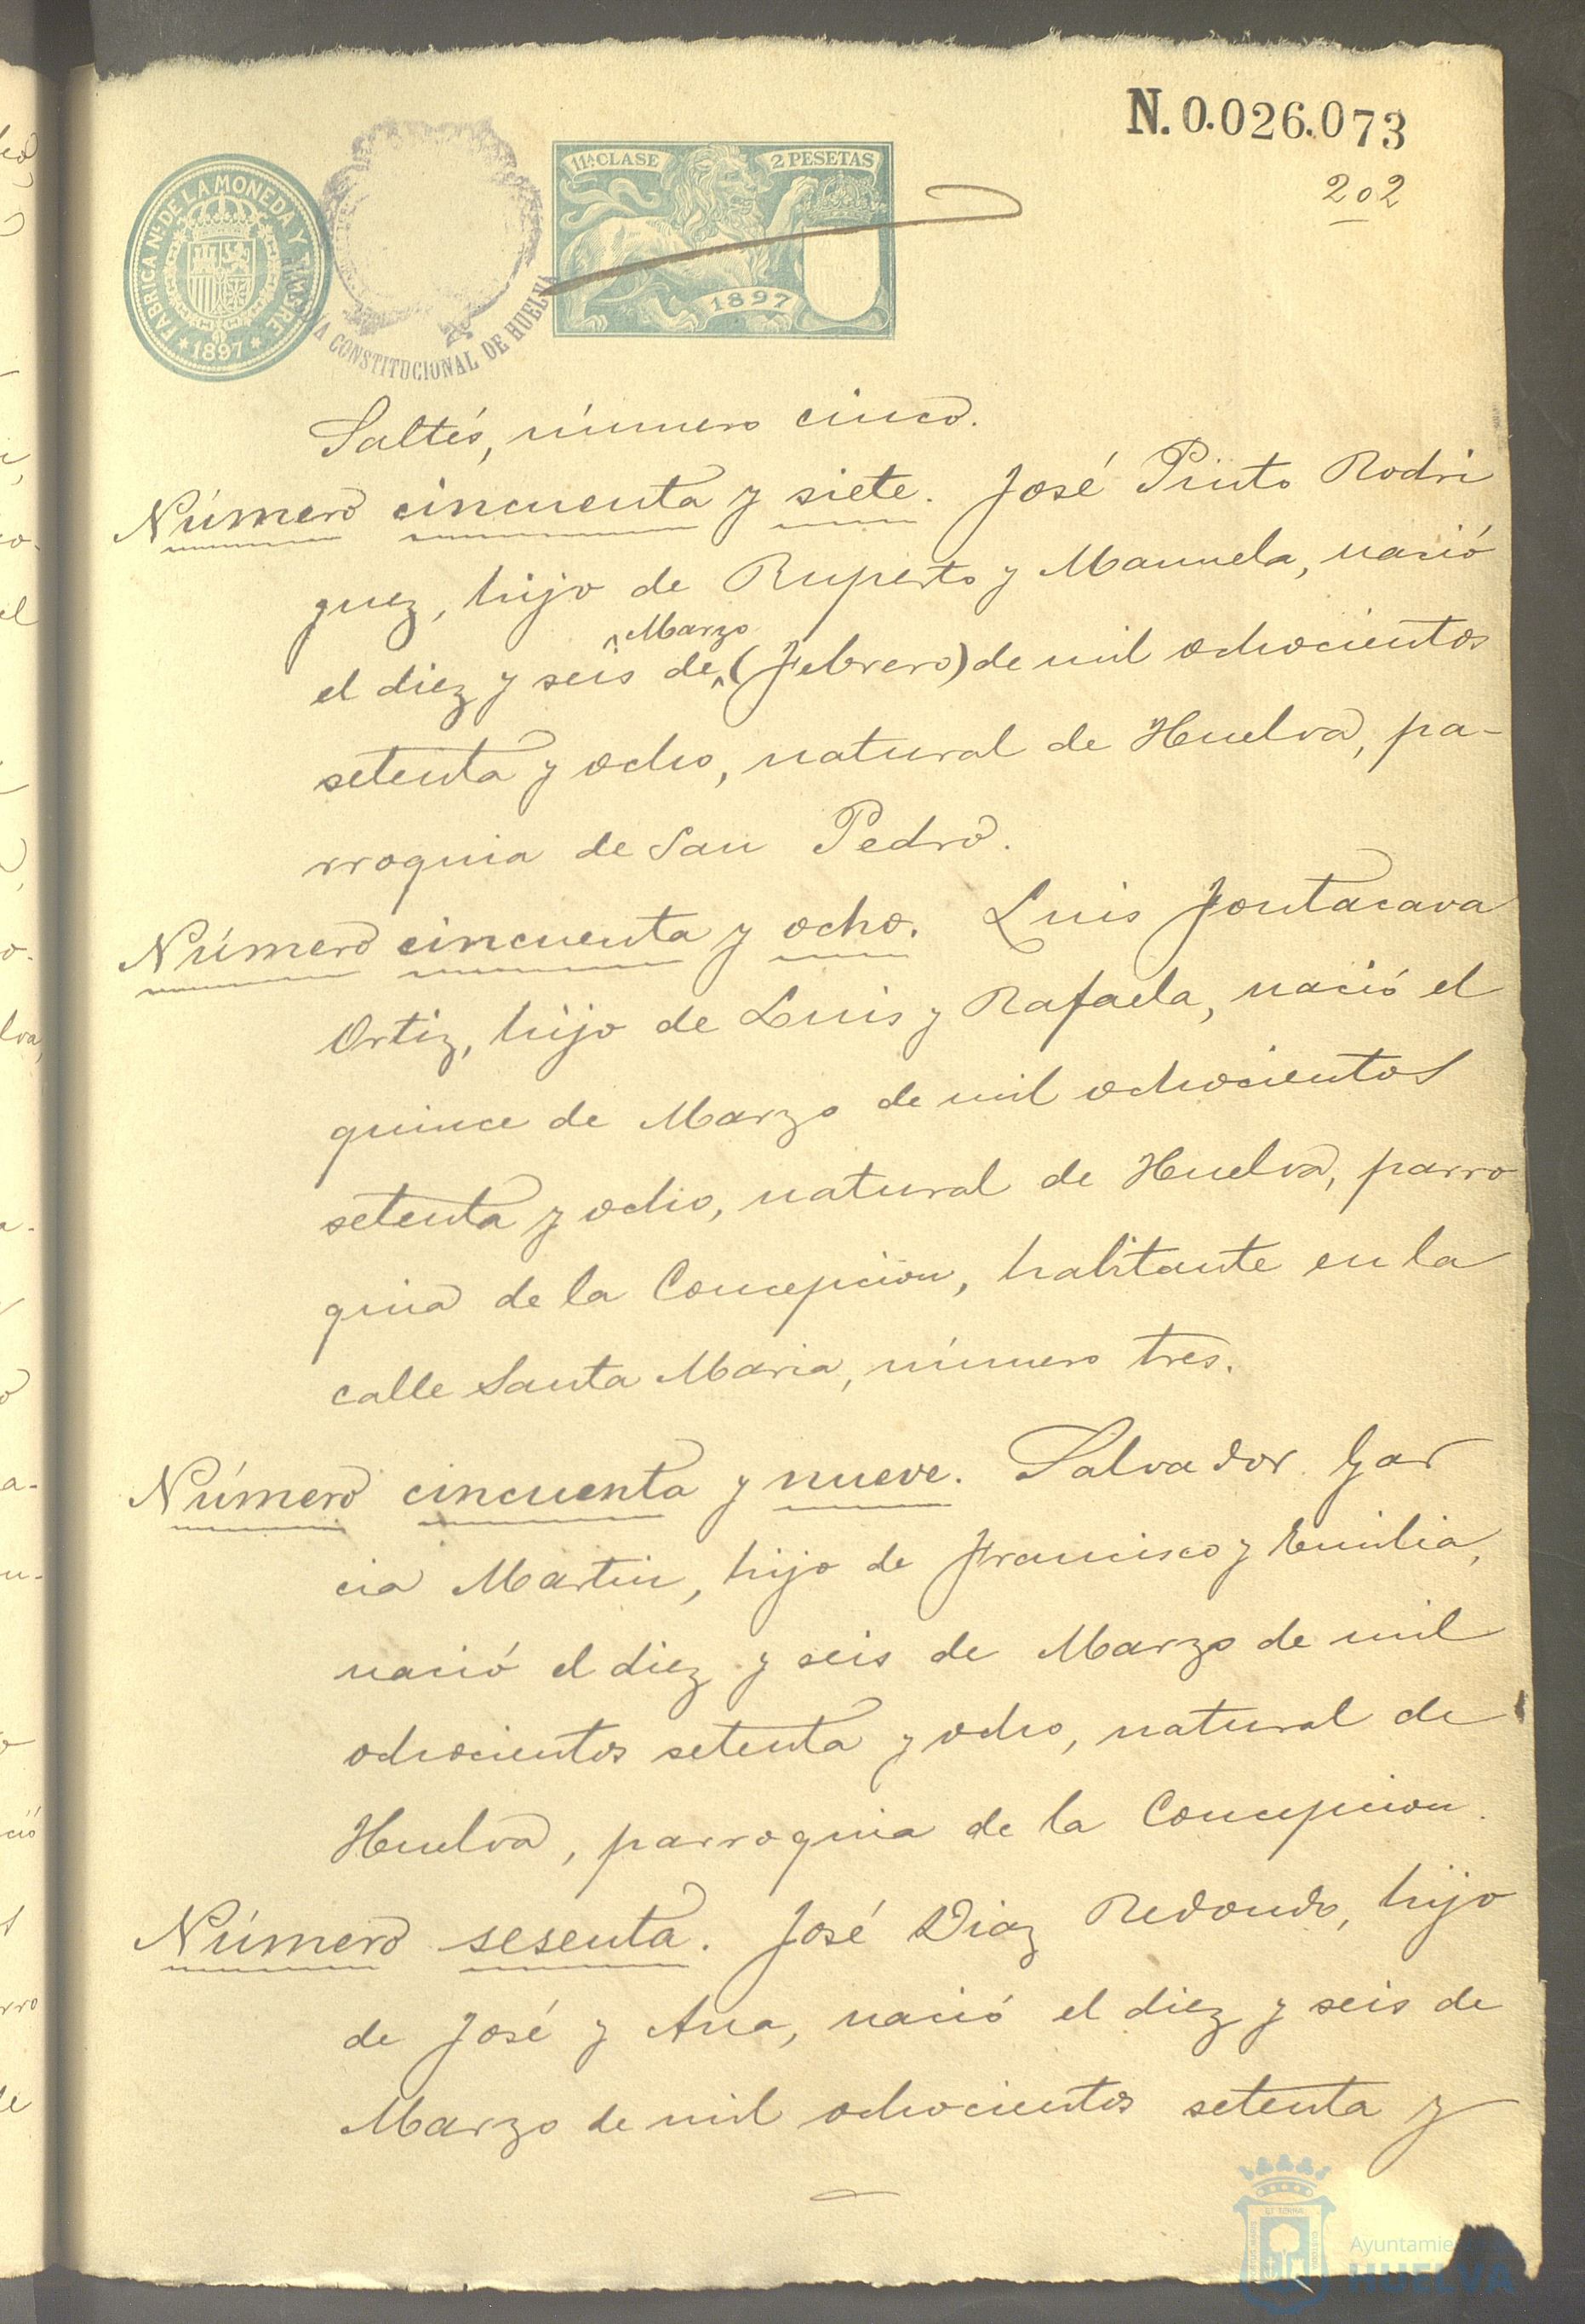 N. 0.026.073
202
FABRICA Nal DE LA MONEDA Y TIMBRE
* 1897 *
CONSTITUCIONAL DE HUELVA
11ª CLASE
2 PESETAS
1897
Saltés, número cinco.
Número cincuenta y siete. José Pinto Rodri
guez, hijo de Ruperto y Manuela, nació
Marzo
el diez y seis de (Febrero) de mil ochocientos
setenta y ocho, natural de Huelva, pa-
rroquia de San Pedro.
Número cincuenta y ocho. Luis Fontacava
Ortiz, hijo de Luis y Rafaela, nació el
quince de Marzo de mil ochocientos
setenta y ocho, natural de Huelva, parro
quia de la Concepcion, habitante en la
calle Santa Maria, número tres.
Número cincuenta y nueve. Salvador Gar
cia Martin, hijo de Francisco y Emilia,
nació el diez y seis de Marzo de mil
ochocientos setenta y ocho, natural de
Huelva, parroquia de la Concepcion.
Número sesenta. José Diaz Redondo, hijo
de José y Ana, nació el diez y seis de
Marzo de mil ochocientos setenta y
HUELVA